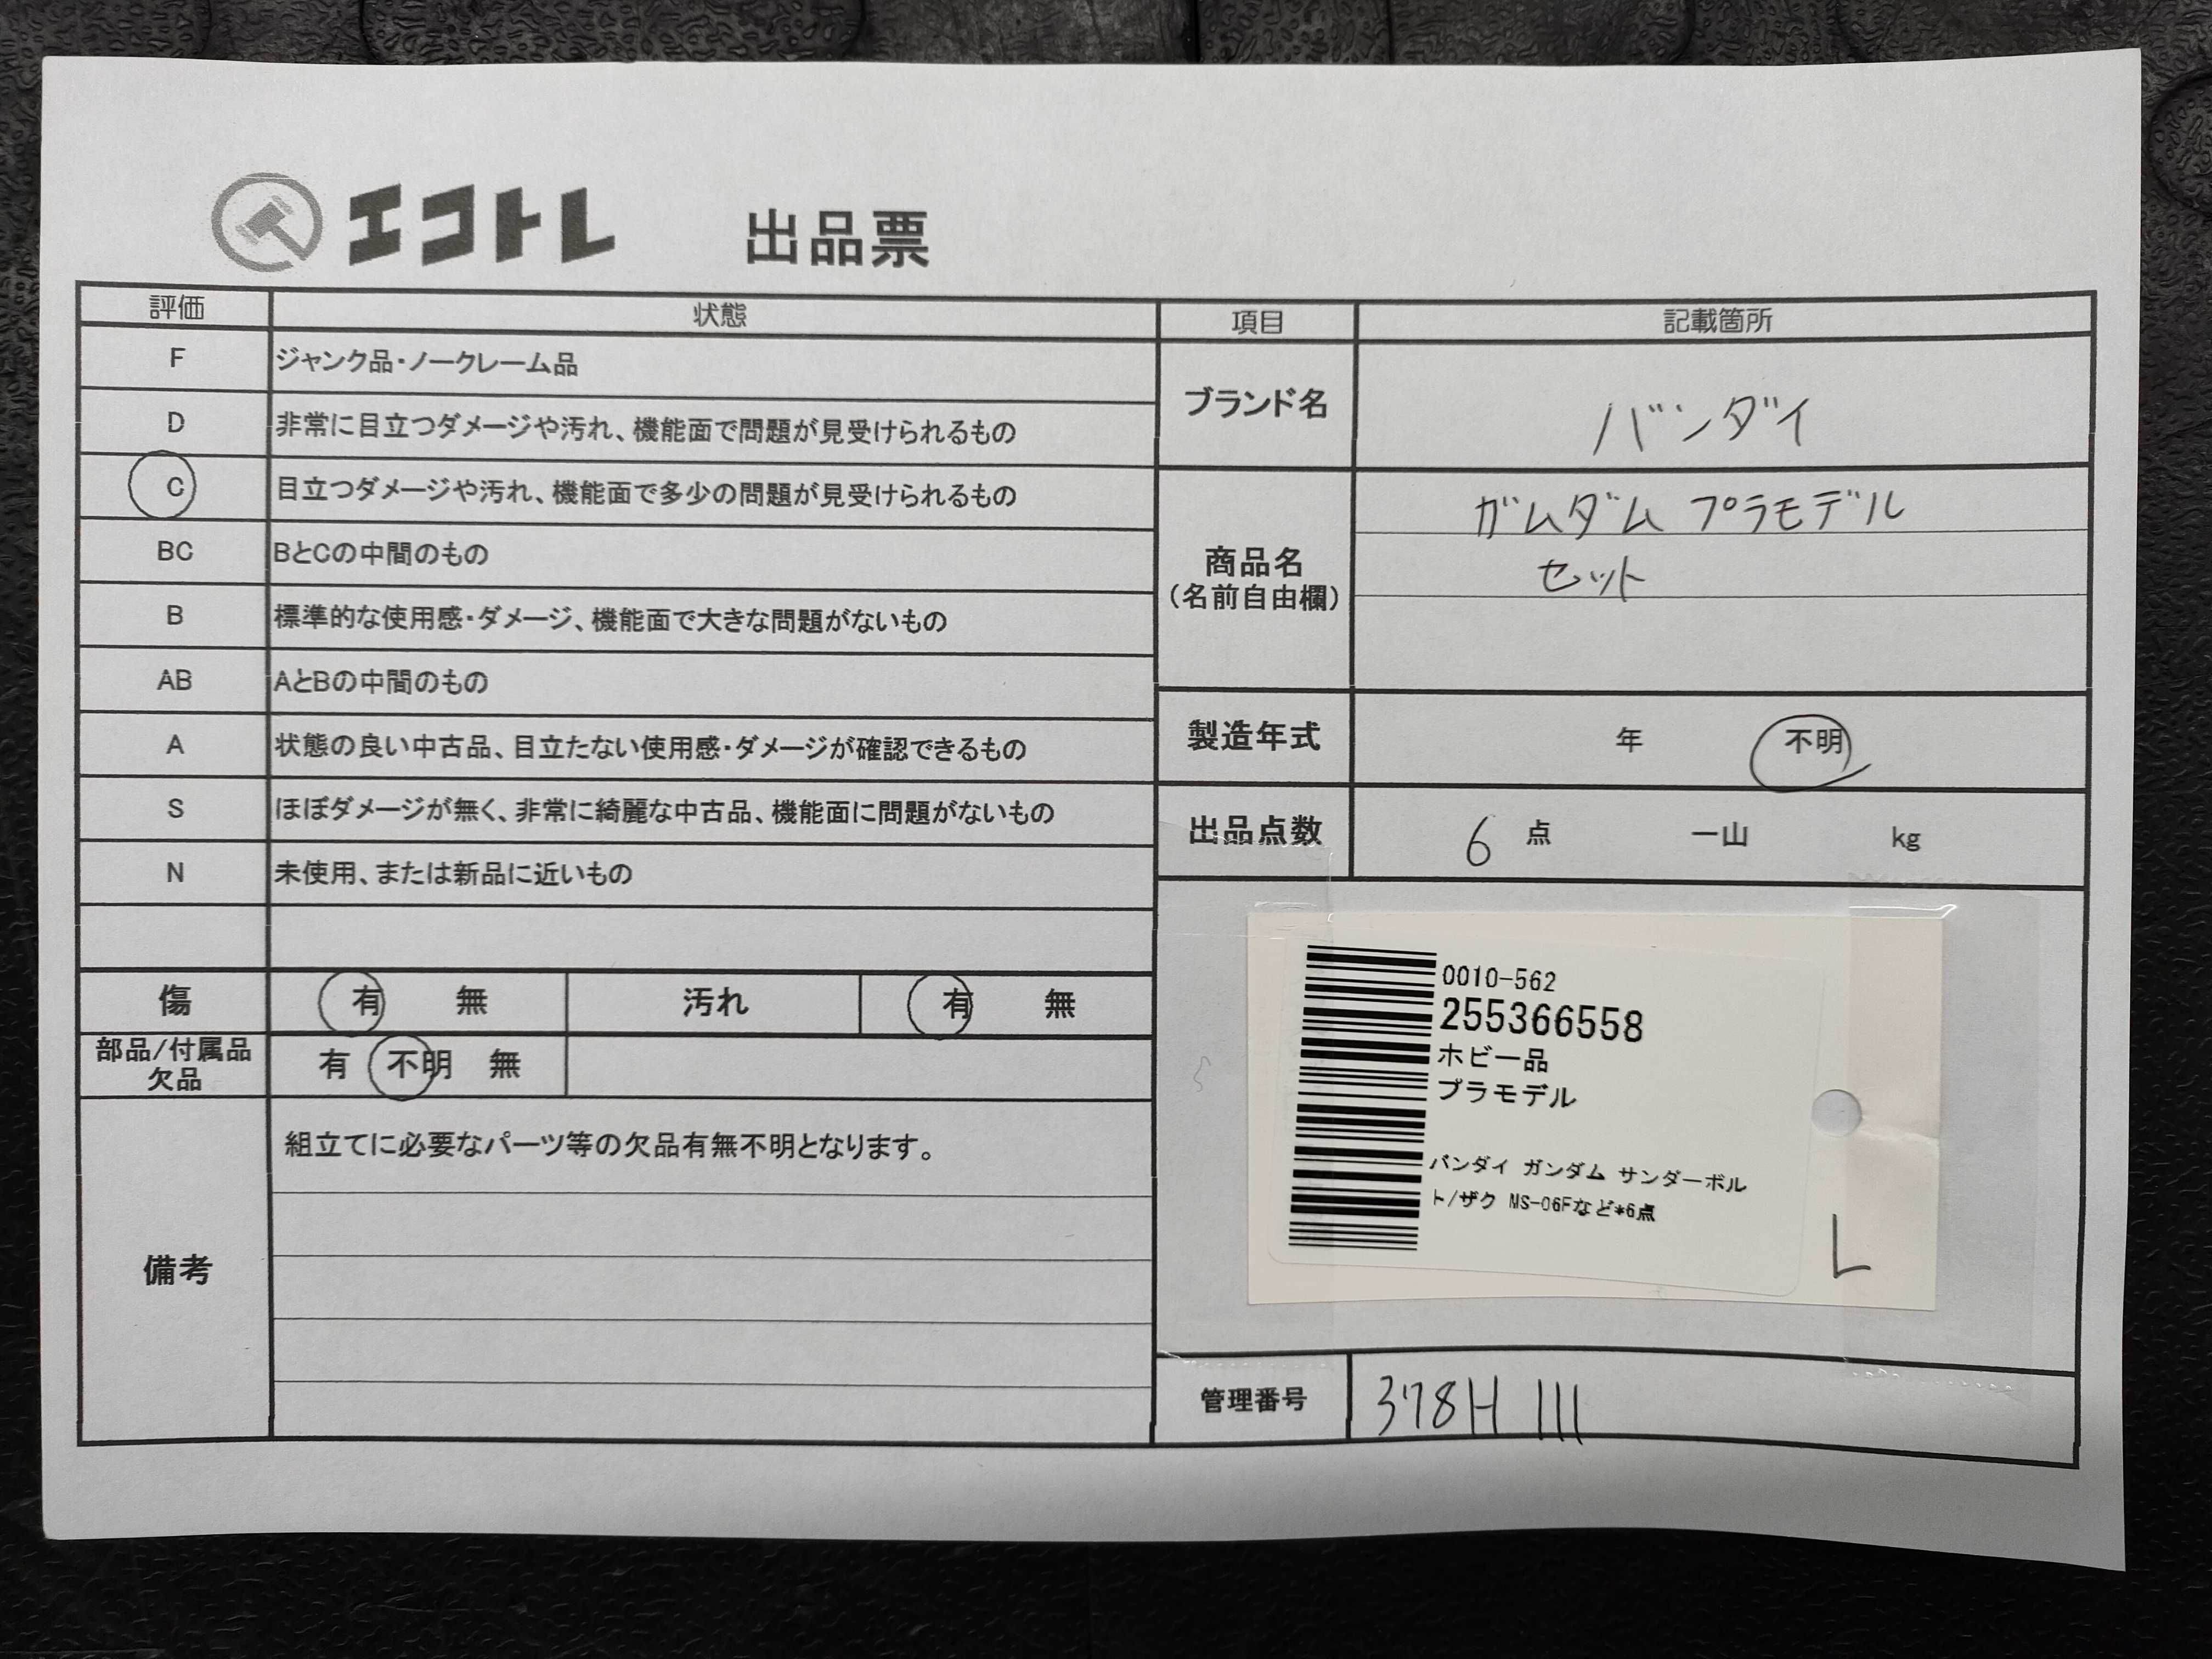 エコトレ 出品票
評価 状態
F ジャンク品・ノークレーム品
D 非常に目立つダメージや汚れ、機能面で問題が見受けられるもの
C 目立つダメージや汚れ、機能面で多少の問題が見受けられるもの
BC BとCの中間のもの
B 標準的な使用感・ダメージ、機能面で大きな問題がないもの
AB AとBの中間のもの
A 状態の良い中古品、目立たない使用感・ダメージが確認できるもの
S ほぼダメージが無く、非常に綺麗な中古品、機能面に問題がないもの
N 未使用、または新品に近いもの
傷 有 無 汚れ 有 無
部品/付属品
欠品 有 不明 無
備考 組立てに必要なパーツ等の欠品有無不明となります。
項目 記載箇所
ブランド名 バンダイ
商品名
(名前自由欄)
ガムダム プラモデル
セット
製造年式 年 不明
出品点数 6 点 一山 kg
0010-562
255366558
ホビー品
プラモデル
バンダイ ガンダム サンダーボル
ト/ザク MS-06Fなど*6点
L
管理番号 378H 111